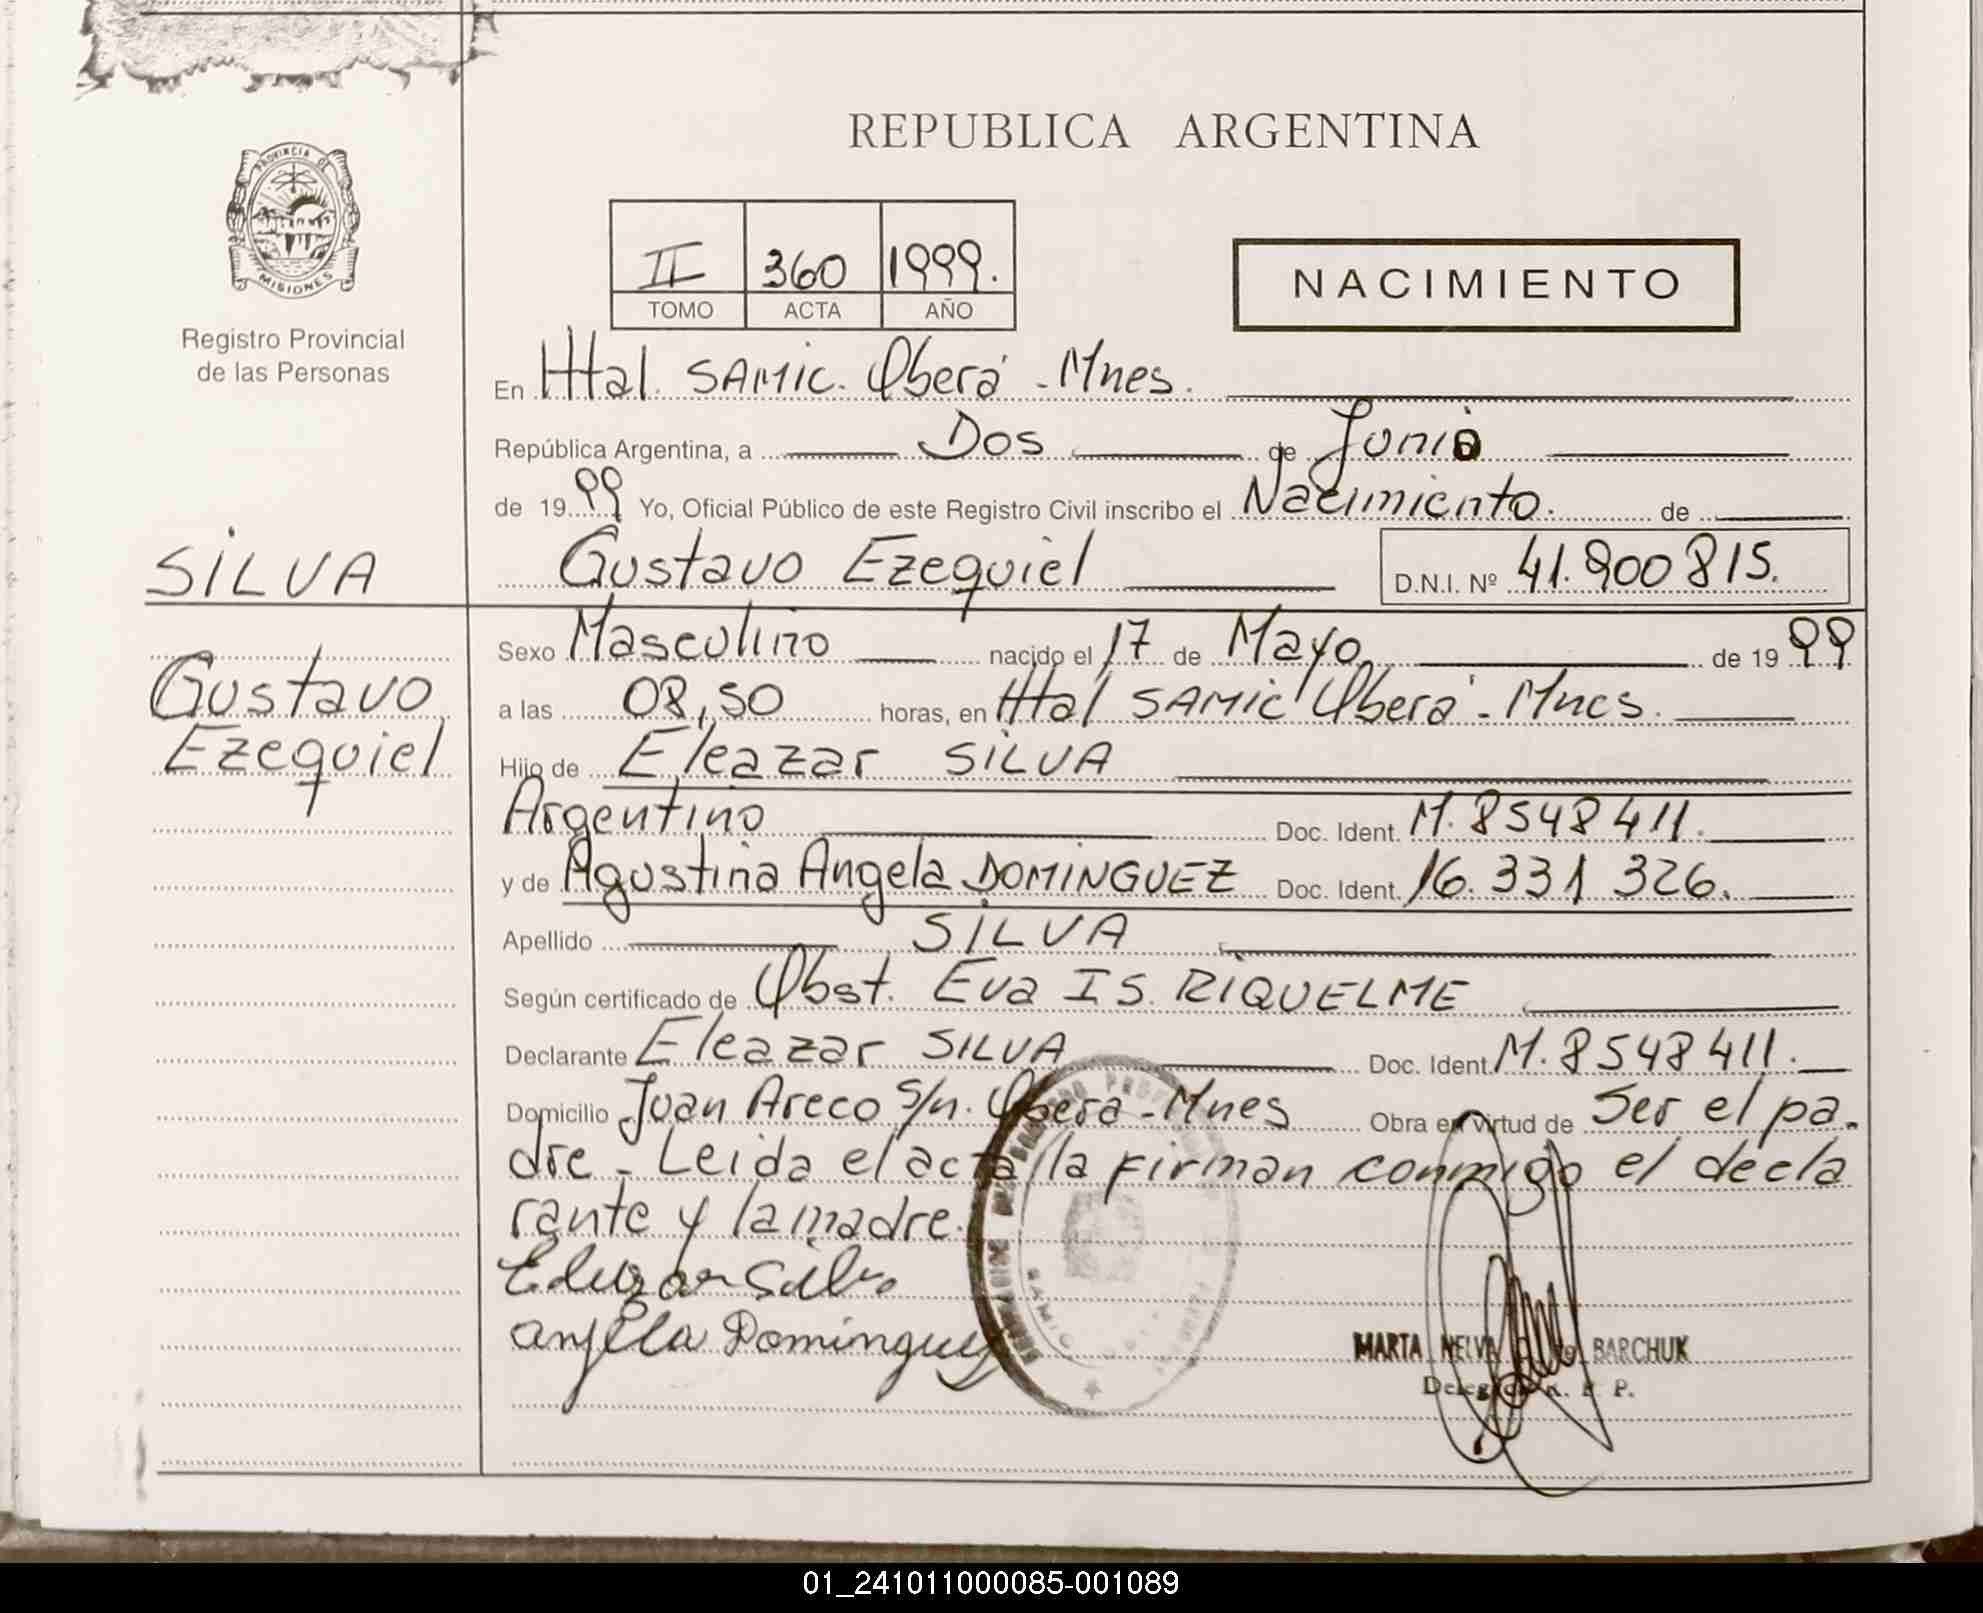 REPUBLICA ARGENTINA
PROVINCIA DE
MISIONES
Registro Provincial
de las Personas
II 360 1999.
TOMO ACTA AÑO
NACIMIENTO
En Htal. SAMIC. Oberá - Mnes.
República Argentina, a Dos de Junio
de 1999 Yo, Oficial Público de este Registro Civil inscribo el Nacimiento. de
SILVA
Gustavo Ezequiel D.N.I. Nº 41.900815.
Gustavo
Ezequiel
Sexo Masculino nacido el 17 de Mayo de 1999
a las 08,50 horas, en Htal SAMIC Oberá - Mnes.
Hijo de Eleazar SILVA
Argentino Doc. Ident. M. 8548411.
y de Agustina Angela DOMINGUEZ Doc. Ident. 16.331 326.
Apellido SILVA
Según certificado de Obst. Eva IS. RIQUELME
Declarante Eleazar SILVA Doc. Ident. M. 8548411.
Domicilio Juan Areco S/n. Oberá - Mnes Obra en virtud de Ser el pa-
dre - Leida el acta, la firman conmigo el decla
rante y la madre.
Eleazar Silva
Angela Dominguez
MARTA NELVA BARCHUK
Delegada R. P. P.
01_241011000085-001089